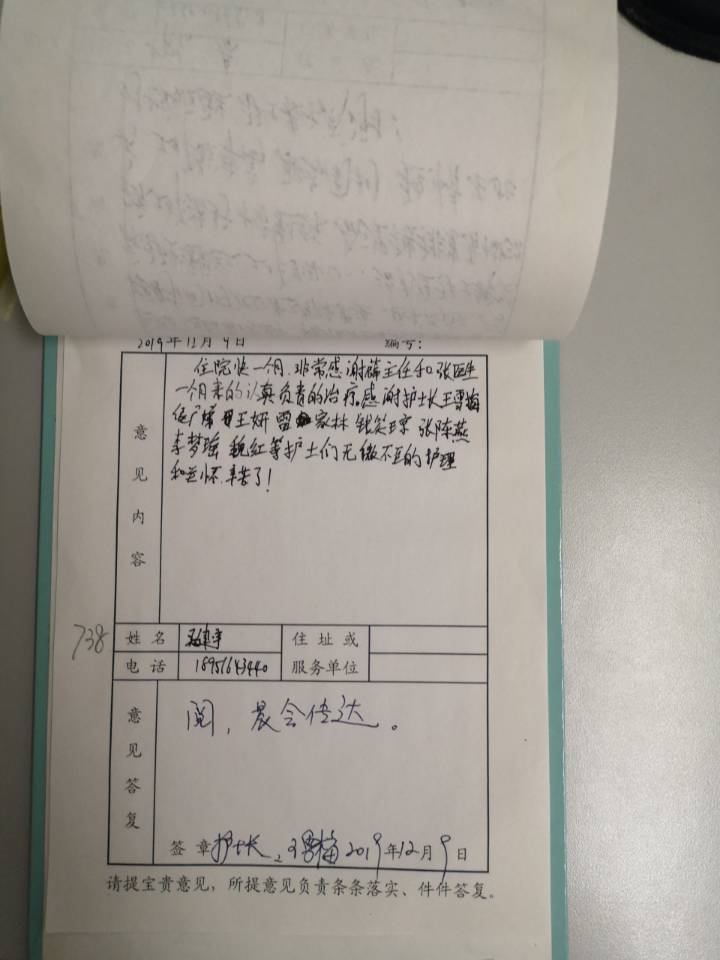 2019年12月4日 编号:
住院快一个月.非常感谢薛主任和张医生
一个月来的认真负责的治疗感谢护士长王雪梅
王妍 雷家林 钱笑琼 张陈燕
李梦瑶 魏红等护士们无微不至的护理
和关怀.辛苦了!
意见内容
738
姓名
电话 18951643440
住址或
服务单位
意见答复
阅,晨会传达。
签章 护士长、王雪梅 2019年12月9日
请提宝贵意见,所提意见负责条条落实、件件答复。